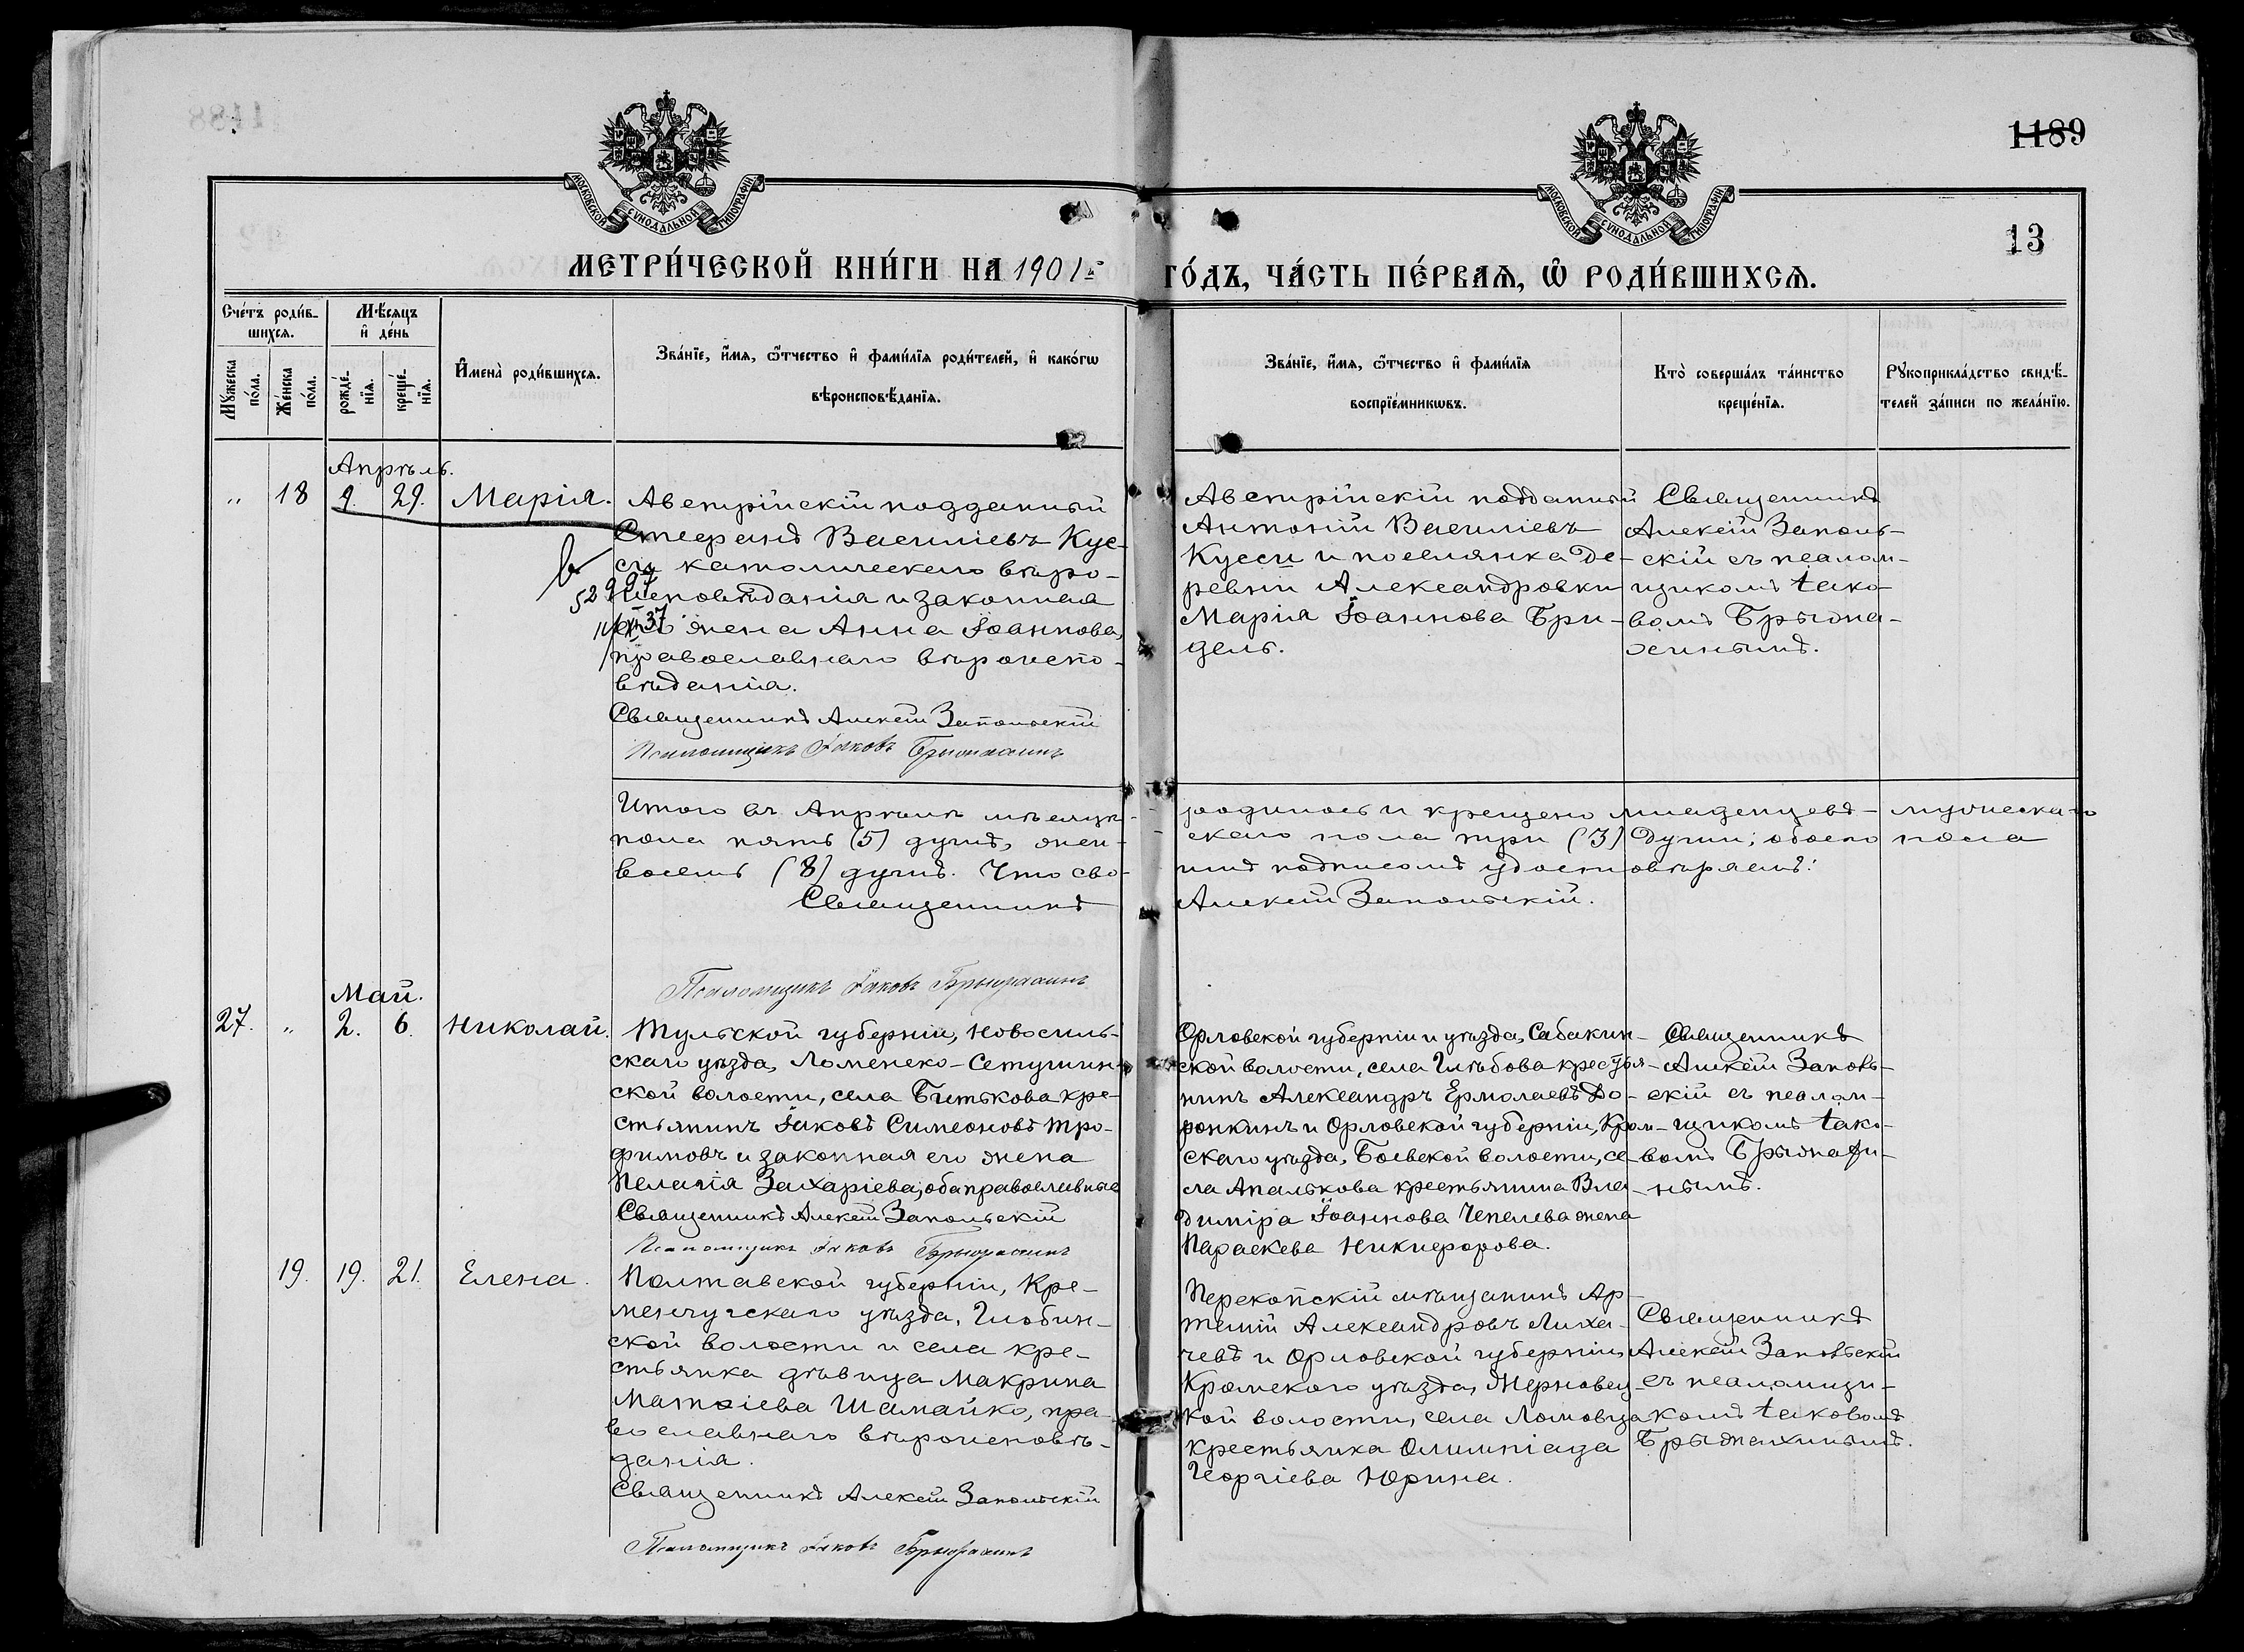 1189
13
МОСКОВСКОЙ СѴНОДАЛЬНОЙ ТИПОГРАФІИ
МОСКОВСКОЙ СѴНОДАЛЬНОЙ ТИПОГРАФІИ
МЕТРИ́ЧЕСКОЙ КНИ́ГИ НА 1901й
ГО́ДЪ, ЧА́СТЬ ПЕ́РВАѦ, Ѡ҆ РОДИ́ВШИХСѦ.
Сче́тъ роди́в-
шихсѧ.
Мꙋ́жеска
по́ла.
Же́нска
по́ла.
Мѣ́сѧцъ
и҆ де́нь
рожде́-
нїѧ.
креще́-
нїѧ.
И҆мена̀ роди́вшихсѧ.
Зва́нїе, и҆́мѧ, ѻ҆́тчество и҆ фами́лїѧ роди́телей, и҆ како́гѡ
вѣроисповѣ́данїѧ.
Зва́нїе, и҆́мѧ, ѻ҆́тчество и҆ фами́лїѧ
воспрїе́мникѡвъ.
Кто̀ соверша́лъ та́инство
креще́нїѧ.
Рꙋкоприкла́дство свидѣ́-
телей за́писи по жела́нїю.
Апрѣль.
„ 18 9. 29. Марія.
Австрійскій подданный
Стефанъ Василіевъ Кус-
си католическаго вѣро-
исповѣданія и законная
его жена Анна Іоаннова,
православнаго вѣроиспо-
вѣданія.
Священникъ Алексій Запольскій
Псаломщикъ Іаковъ
Австрійскій подданный
Антоній Василіевъ
Кусси и поселянка де-
ревни Александровки
Марія Іоаннова Бри-
дель.
Священникъ
Алексій Заполь-
скій съ псалом-
щикомъ Іако-
вомъ
Итого въ Апрѣлѣ мѣсяцѣ
родилось и крещено младенцевъ мужескаго
пола пять (5) душъ, жен-
скаго пола три (3) души; обоего пола
восемь (8) душъ. Что сво-
имъ подписомъ удостовѣряемъ:
Священникъ
Алексій Запольскій.
Псаломщикъ Іаковъ
Май.
27. „ 2. 6. Николай.
Тульской губерніи, Новосиль-
скаго уѣзда, Ломенско-Сетушин-
ской волости, села Битькова кре-
стьянинъ Іаковъ Симеоновъ Тро-
фимовъ и законная его жена
Пелагія Захаріева, оба православные
Священникъ Алексій Запольскій
Псаломщикъ Іаковъ
Орловской губерніи и уѣзда, Сабакин-
ской волости, села Глѣбова крестья-
нинъ Александръ Ермолаевъ До-
ронкинъ и Орловской губерніи, Кром-
скаго уѣзда, Боевской волости, се-
ла Апалькова крестьянина Вла-
диміра Іоаннова Чепелева жена
Параскева Никифорова.
Священникъ
Алексій Заполь-
скій съ псалом-
щикомъ Іако-
вомъ
19. 19. 21. Елена.
Полтавской губерніи, Кре-
менчугскаго уѣзда, Глобин-
ской волости и села кре-
стьянка дѣвица Макрина
Матѳіева Шамайко, пра-
вославнаго вѣроисповѣ-
данія.
Священникъ Алексій Запольскій
Псаломщикъ Іаковъ
Перекопскій мѣщанинъ Ар-
темій Александровъ Лиха-
чевъ и Орловской губерніи,
Кромского уѣзда,
кой волости, села Ломовца
крестьянка Олимпіада
Георгіева Юрина.
Священникъ
Алексій Запольскій
съ псаломщи-
комъ Іаковомъ